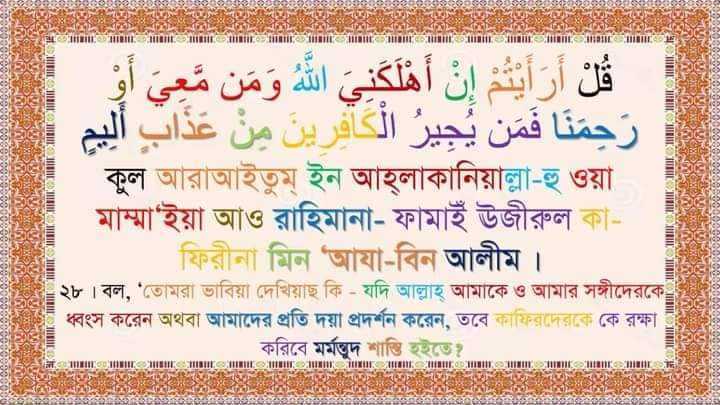 قُلْ أَرَأَيْتُمْ إِنْ أَهْلَكَنِيَ اللَّهُ وَمَن مَّعِيَ أَوْ
رَحِمَنَا فَمَن يُجِيرُ الْكَافِرِينَ مِنْ عَذَابٍ أَلِيمٍ
কুল আরাআইতুম ইন আহ্লাকানিয়াল্লা-হু ওয়া
মাম্মা'ইয়া আও রাহিমানা- ফামাইঁ উজীরুল কা-
ফিরীনা মিন 'আযা-বিন আলীম ।
২৮ । বল, 'তোমরা ভাবিয়া দেখিয়াছ কি - যদি আল্লাহ্ আমাকে ও আমার সঙ্গীদেরকে
ধ্বংস করেন অথবা আমাদের প্রতি দয়া প্রদর্শন করেন, তবে কাফিরদেরকে কে রক্ষা
করিবে মর্মন্তুদ শাস্তি হইতে?